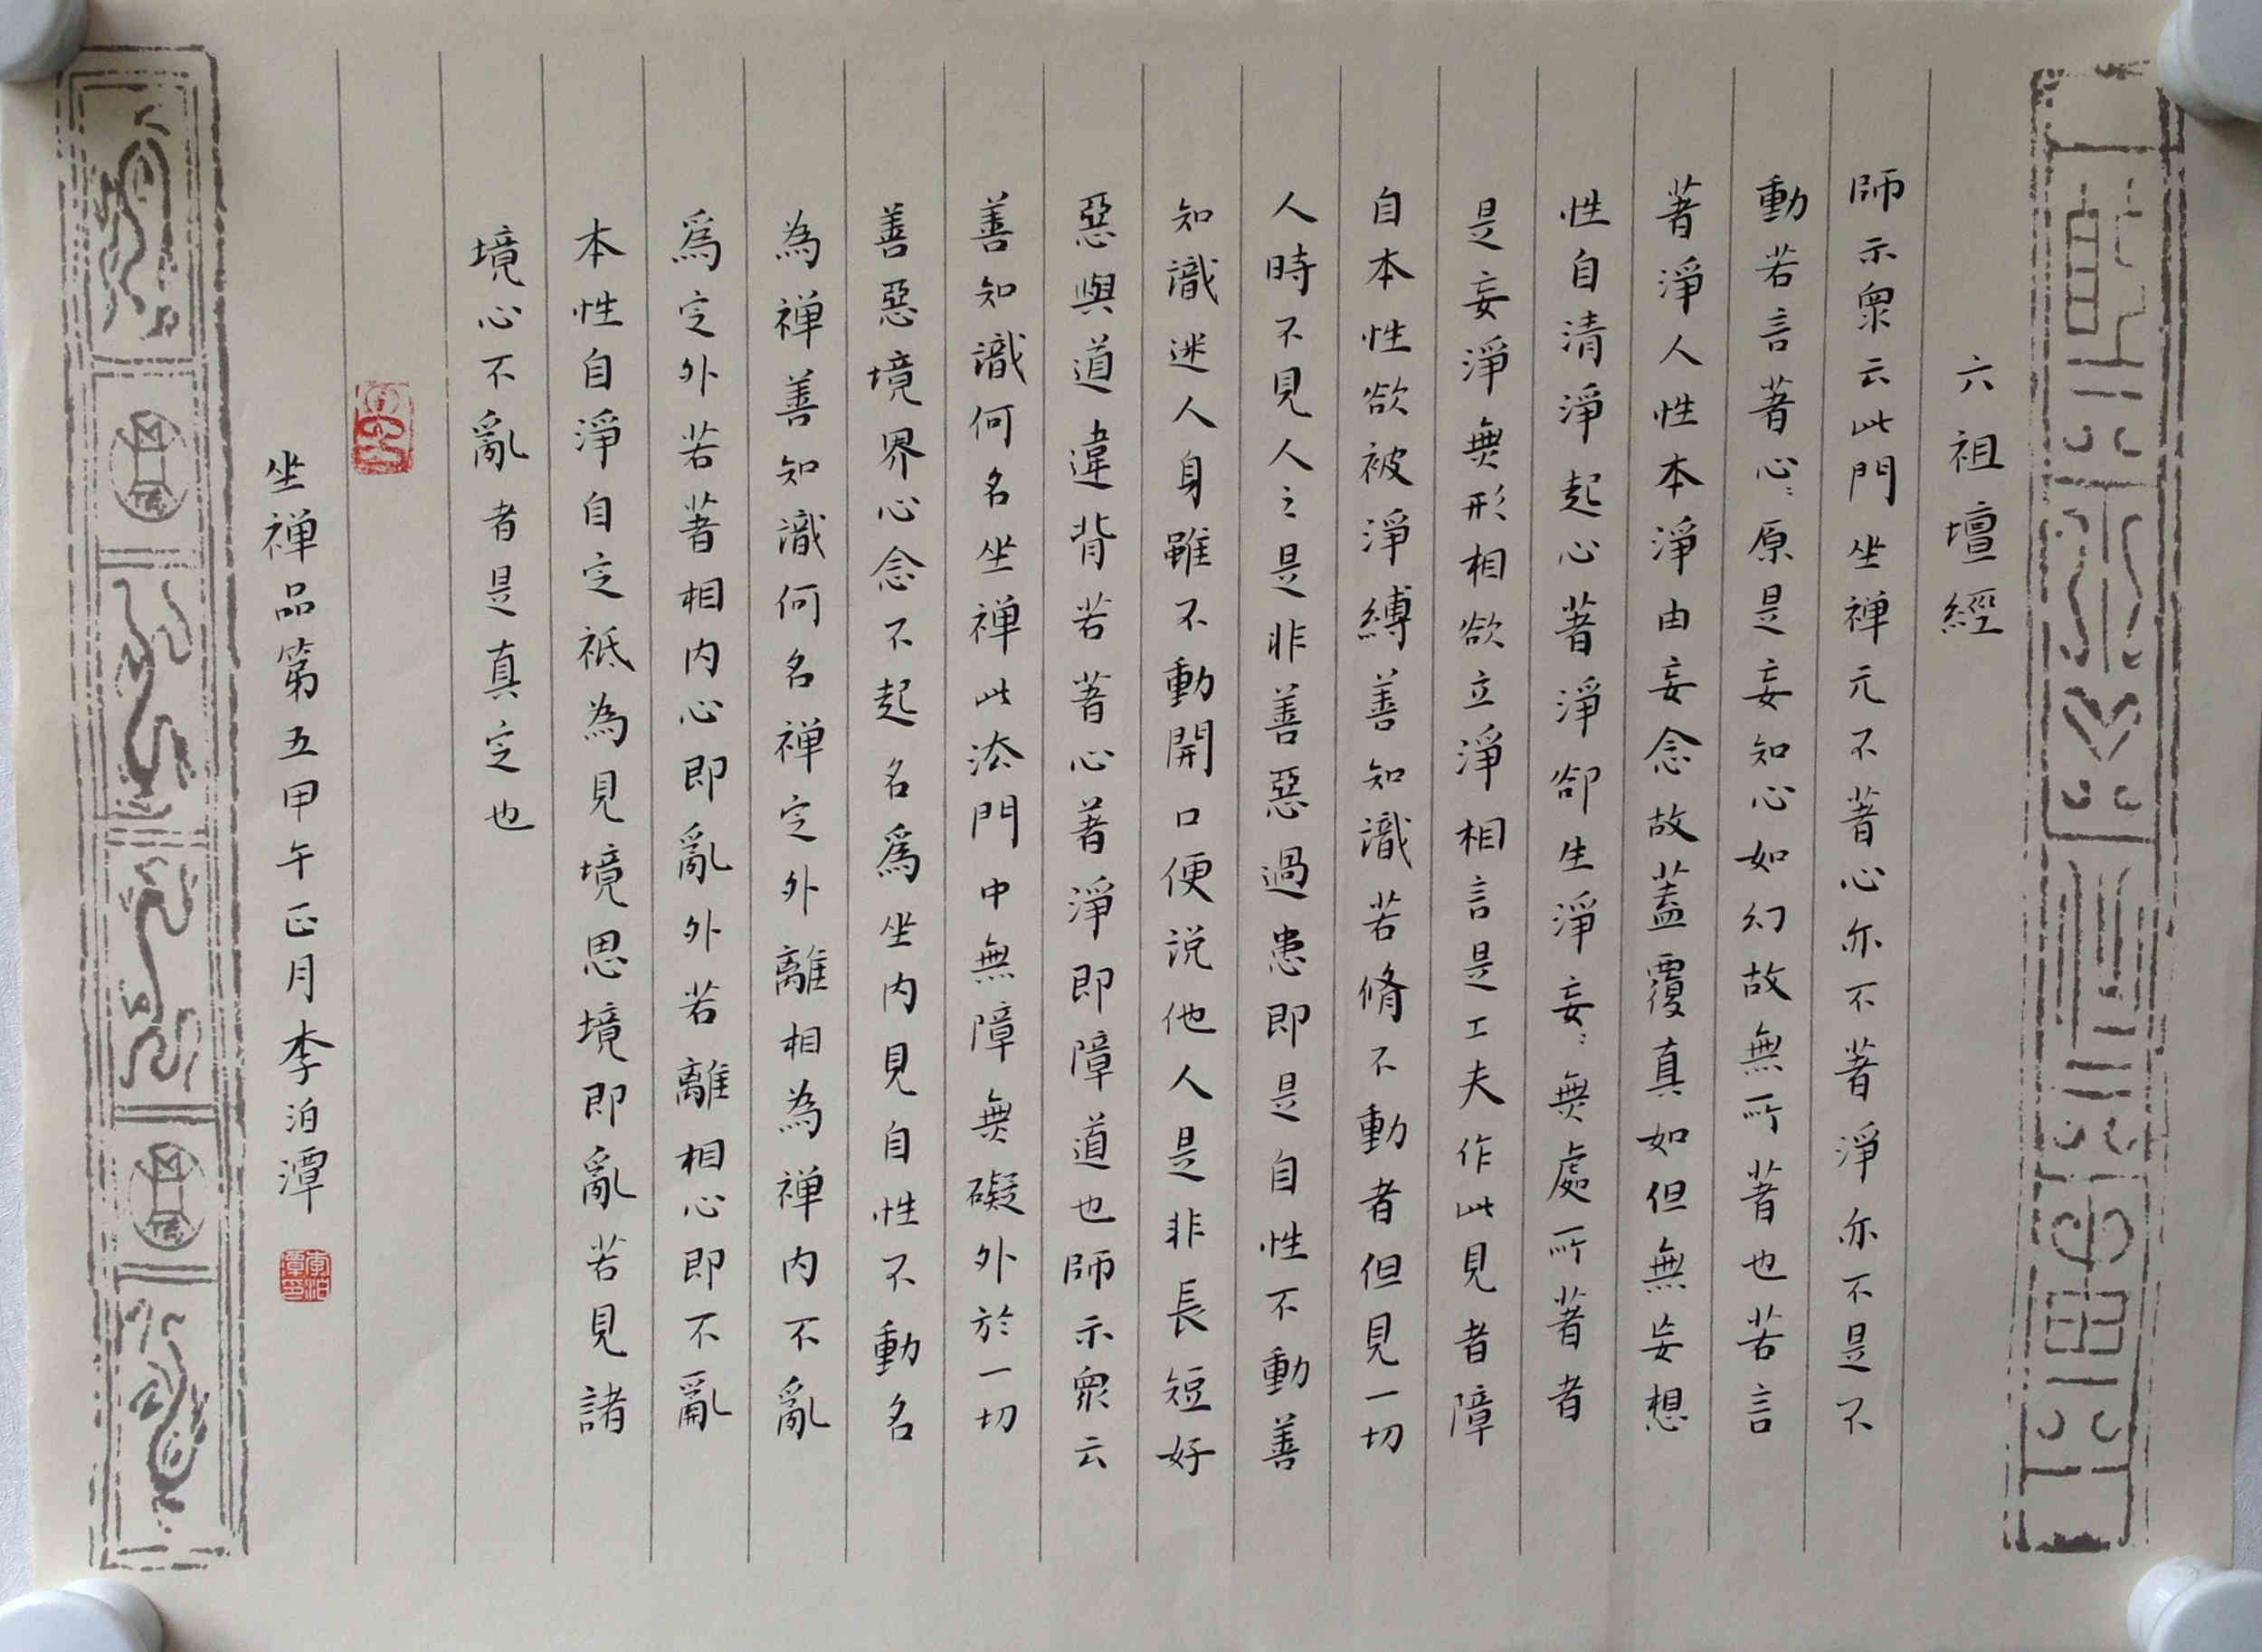 六祖壇經
師示衆云此門坐禅元不著心亦不著淨亦不是不
動若言著心〻原是妄知心如幻故無所著也若言
著淨人性本淨由妄念故蓋覆真如但無妄想
性自清淨起心著淨卻生淨妄〻無處所著者
是妄淨無形相欲立淨相言是工夫作此見者障
自本性欲被淨縛善知識若脩不動者但見一切
人時不見人之是非善惡過患即是自性不動善
知識迷人身雖不動開口便说他人是非長短好
惡與道違背若著心著淨即障道也師示衆云
善知識何名坐禅此法門中無障無礙外於一切
善惡境界心念不起名爲坐内見自性不動名
為禅善知識何名禅定外離相為禅内不亂
爲定外若著相内心即亂外若離相心即不亂
本性自淨自定祗為見境思境即亂若見諸
境心不亂者是真定也
坐禅品第五甲午正月李泊潭
李泊潭印